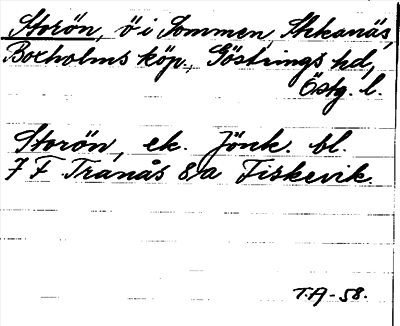 Storön, ö i Sommen, Ihkanäs,
Boxholms köp., Göstrings hd,
Östg. l.
Storön, ek. Jönk. bl.
7 F Tranås 8 a Fiskevik.
T.A-58.